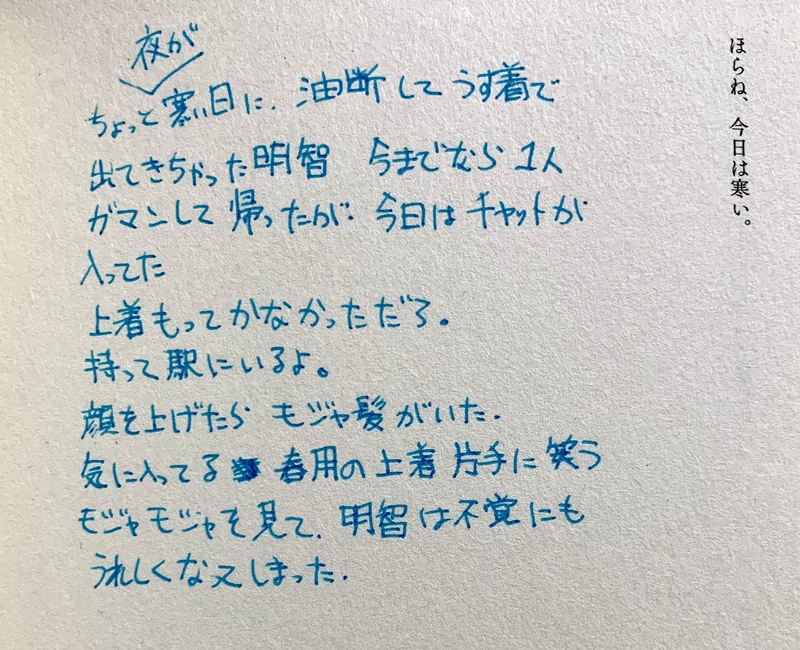 ほらね、今日は寒い。
夜が
ちょっと寒い日に、油断してうす着で
出てきちゃった明智 今までなら1人
ガマンして帰ったが、今日はチャットが
入ってた
上着もってかなかっただろ。
持って駅にいるよ。
顔を上げたら モジャ髪がいた。
気に入ってる 春用の上着 片手に笑う
モジャモジャを見て、明智は不覚にも
うれしくなってしまった。